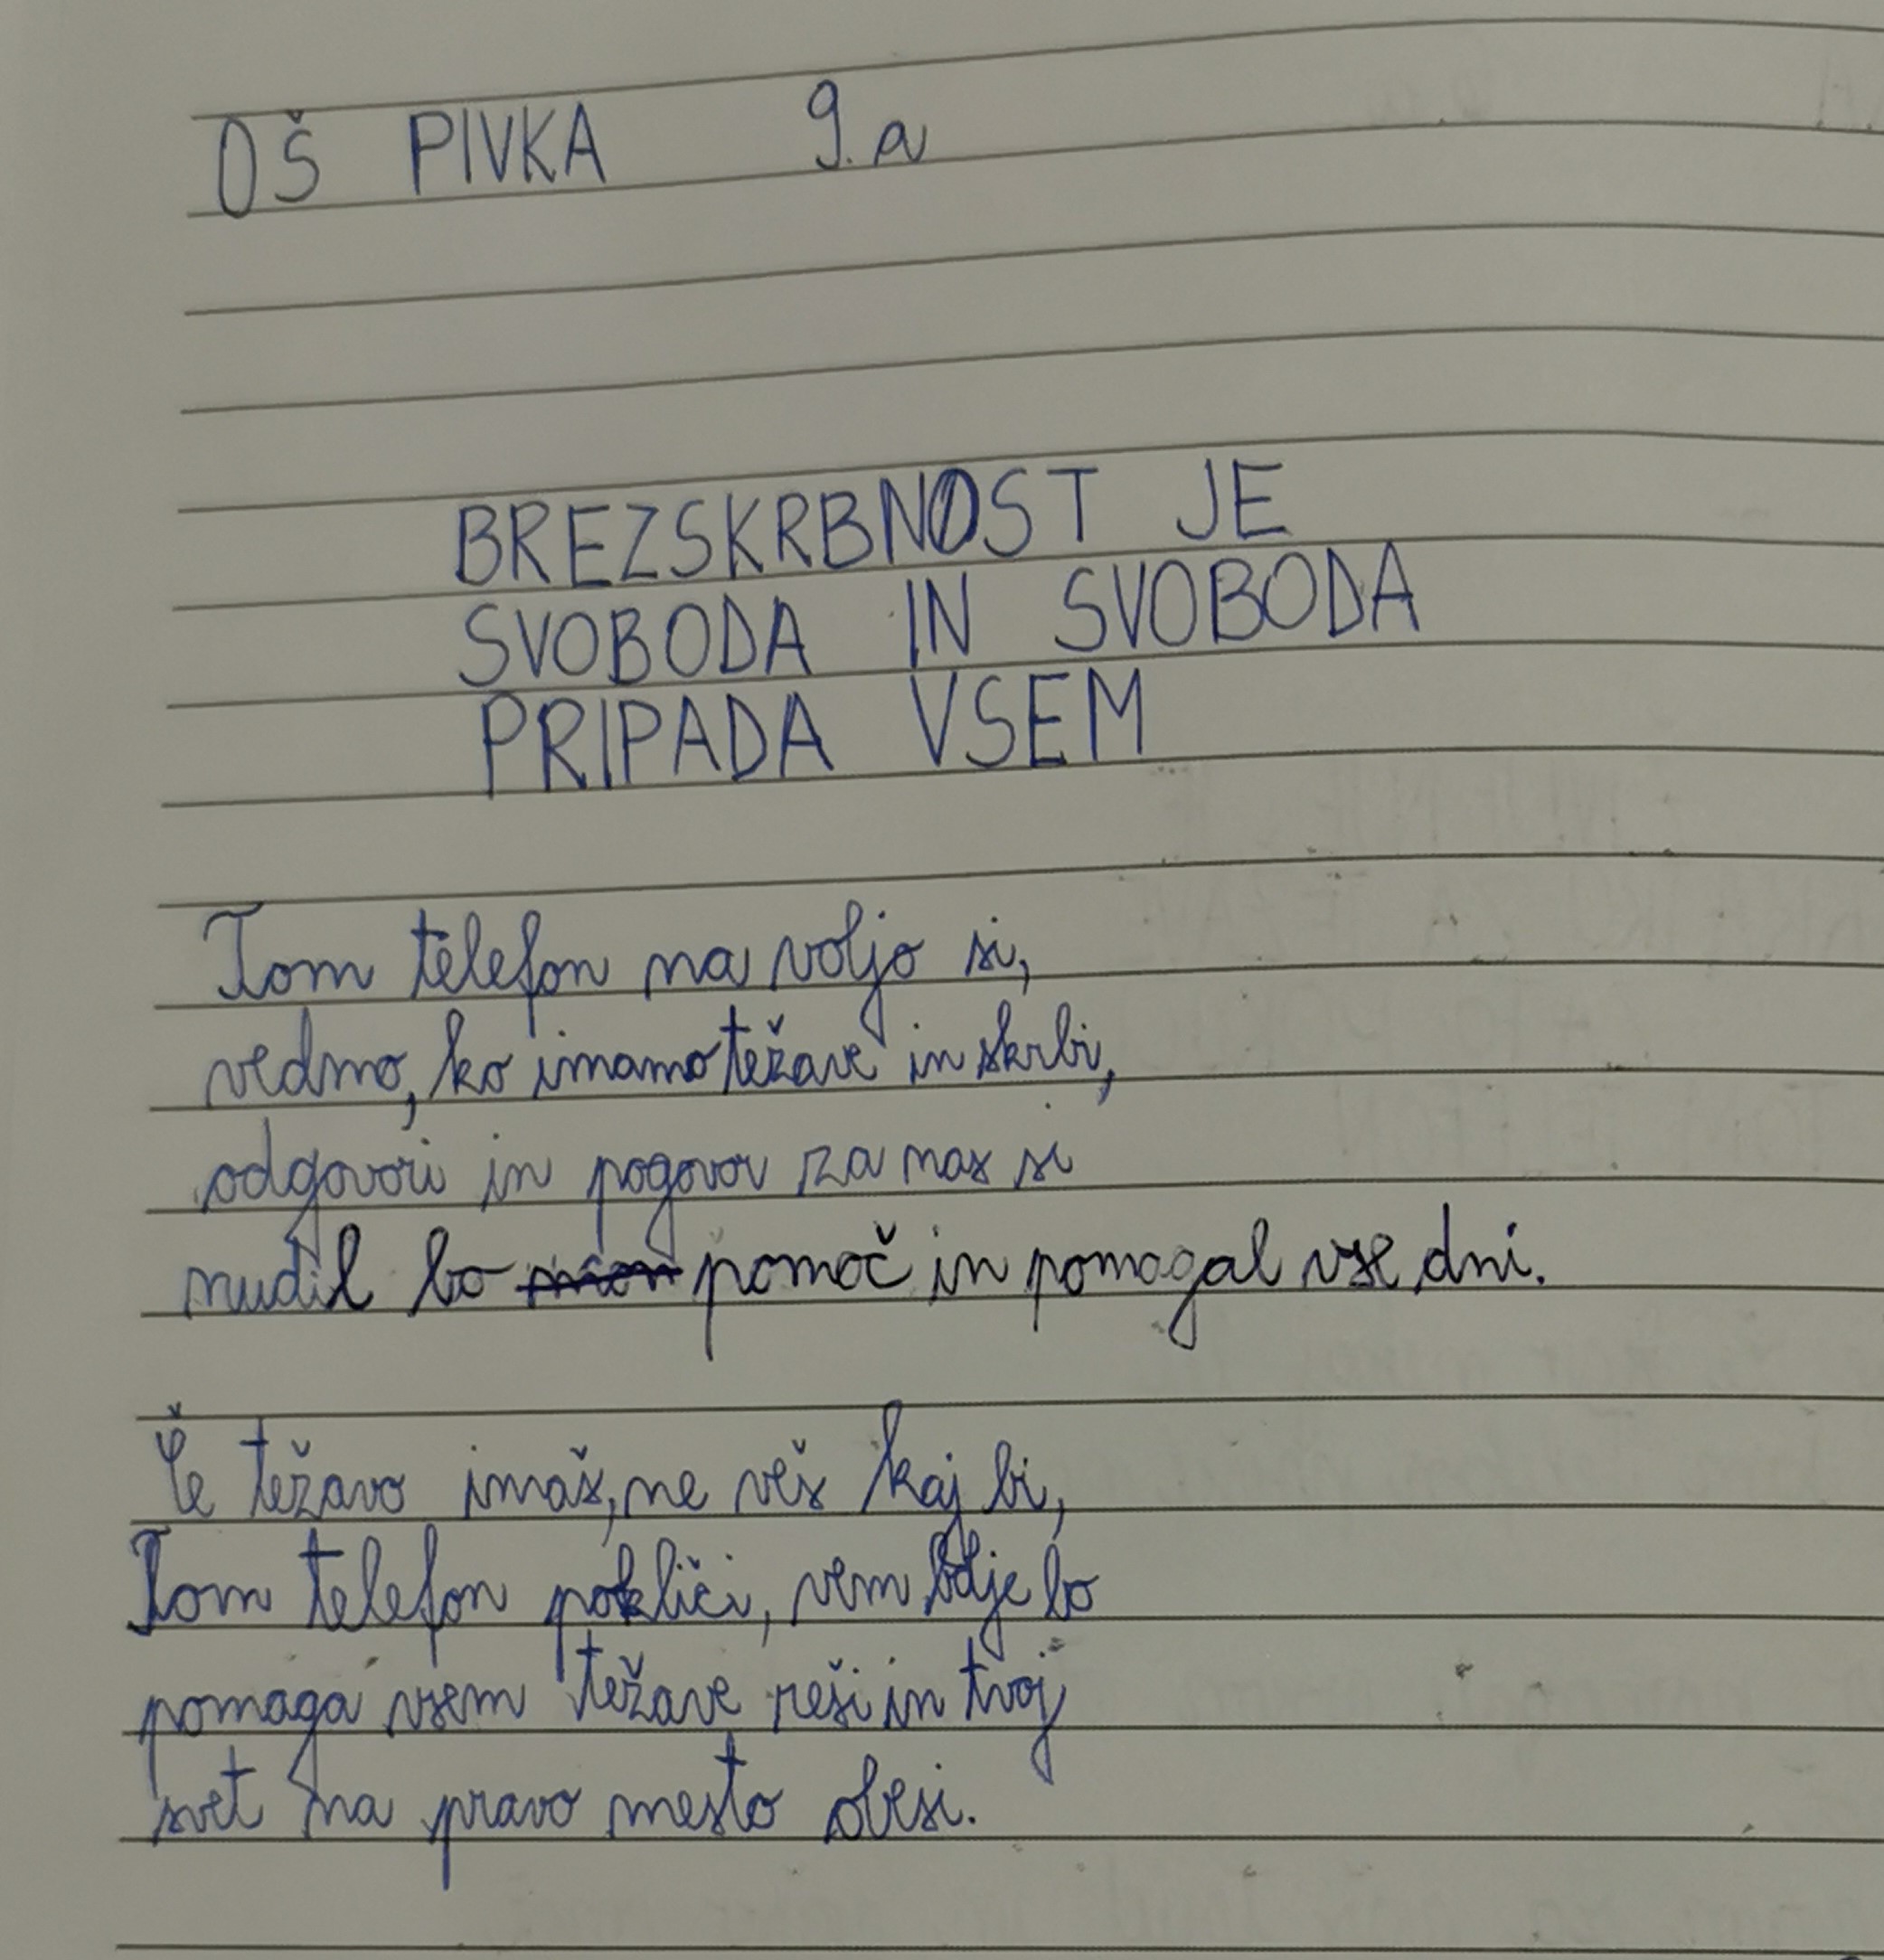 OŠ PIVKA 9.a
BREZSKRBNOST JE
SVOBODA IN SVOBODA
PRIPADA VSEM
Tom telefon na voljo si,
vedmo, ko imamo težave in skrbi,
odgovori in pogovor za nas si
nudil bo pomoč in pomagal vse dni.
Če težavo imaš, ne veš kaj bi,
Tom telefon pokliči, vem bolje bo
pomaga vsem težave reši in tvoj
svet na pravo mesto obesi.